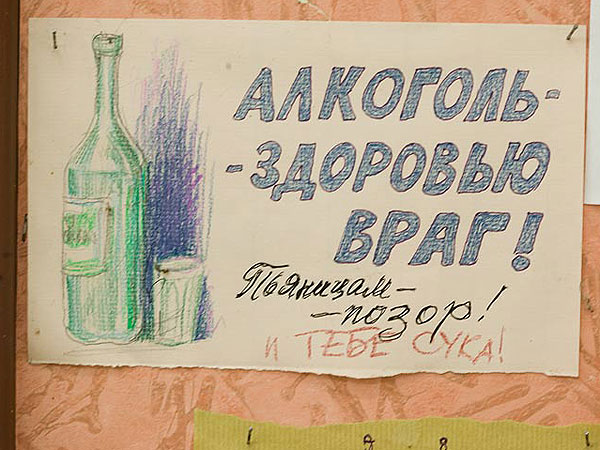 АЛКОГОЛЬ-
-ЗДОРОВЬЮ
ВРАГ!
Пьяницам-
-позор!
И ТЕБЕ СУКА!